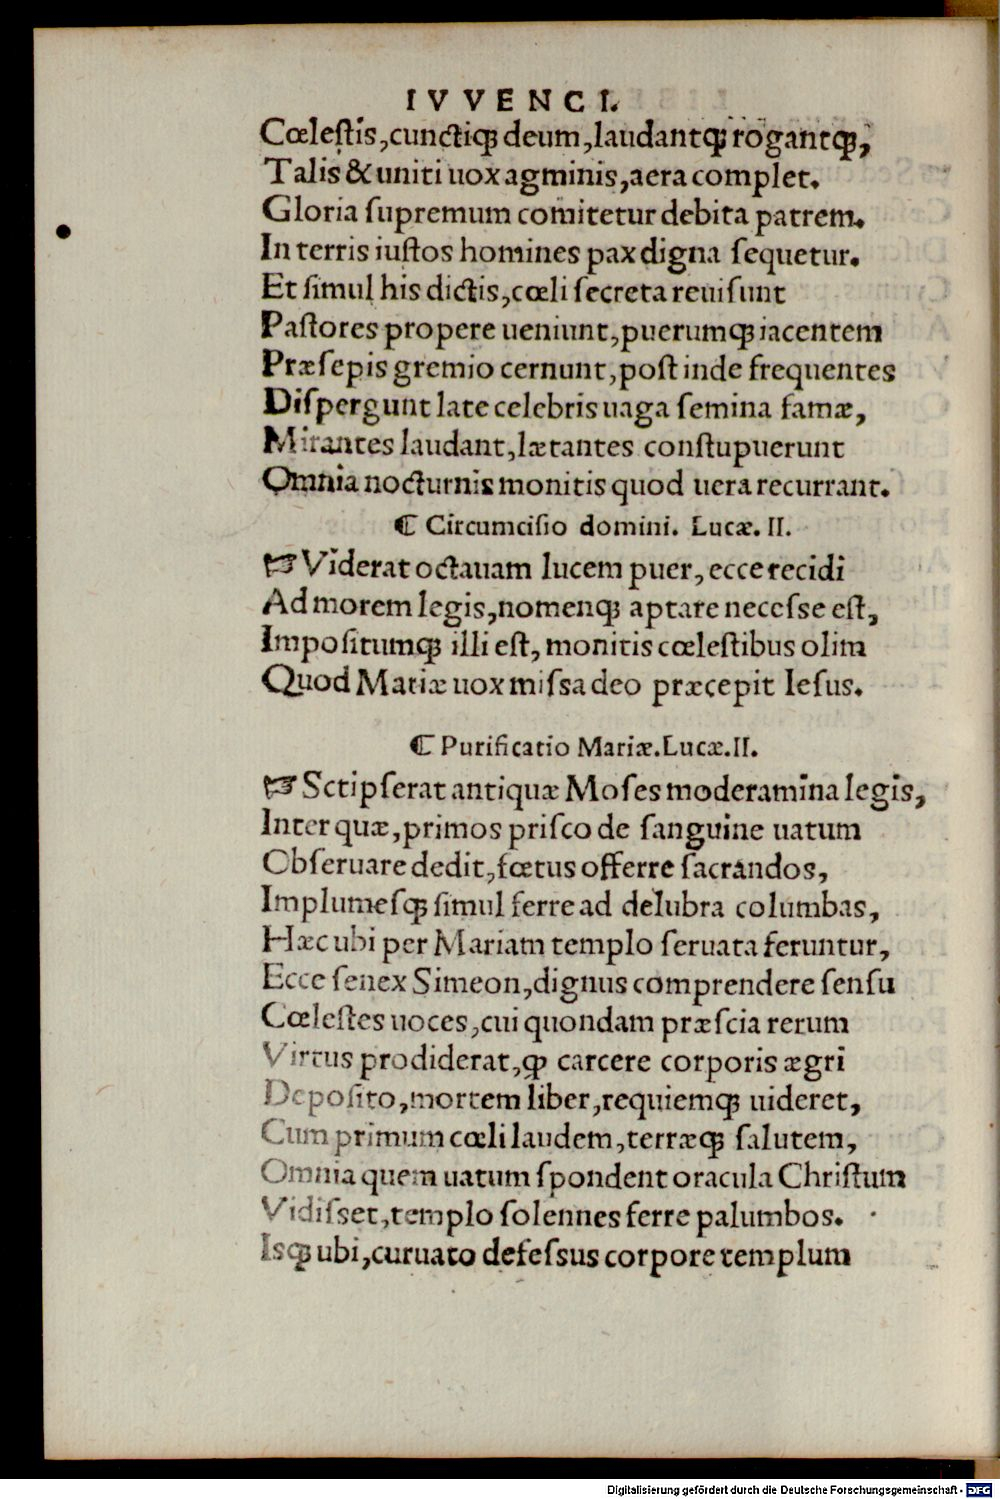 IVVENCI.
Cœleſtis,cunctiqꝫ deum,laudantqꝫ rogantqꝫ,
Talis & uniti uox agminis,aera complet.
Gloria ſupremum comitetur debita patrem.
In terris iuſtos homines pax digna ſequetur.
Et ſimul his dictis,cœli ſecreta reuiſunt
Paſtores propere ueniunt,puerumqꝫ iacentem
Præſepis gremio cernunt,poſt inde frequentes
Diſpergunt late celebris uaga ſemina famæ,
Mirantes laudant,lætantes conſtupuerunt
Omnia nocturnis monitis quod uera recurrant.
⁋ Circumciſio domini. Lucæ. II.
☞ Viderat octauam lucem puer, ecce recidi
Ad morem legis,nomenqꝫ aptare neceſse eſt,
Impoſitumqꝫ illi eſt, monitis cœleſtibus olim
Quod Mariæ uox miſsa deo præcepit Ieſus.
⁋ Purificatio Mariæ.Lucæ.II.
☞ Sctipſerat antiquæ Moſes moderamina legis,
Inter quæ,primos priſco de ſanguine uatum
Obſeruare dedit,fœtus offerre ſacrandos,
Implumeſqꝫ ſimul ferre ad delubra columbas,
Hæc ubi per Mariam templo ſeruata feruntur,
Ecce ſenex Simeon,dignus comprendere ſenſu
Cœleſtes uoces,cui quondam præſcia rerum
Virtus prodiderat,ꝙ carcere corporis ægri
Depoſito,mortem liber,requiemqꝫ uideret,
Cum primum cœli laudem,terræqꝫ ſalutem,
Omnia quem uatum ſpondent oracula Chriſtum
Vidiſset,templo ſolennes ferre palumbos.
Isqꝫ ubi,curuato defeſsus corpore templum
Digitalisierung gefördert durch die Deutsche Forschungsgemeinschaft - DFG